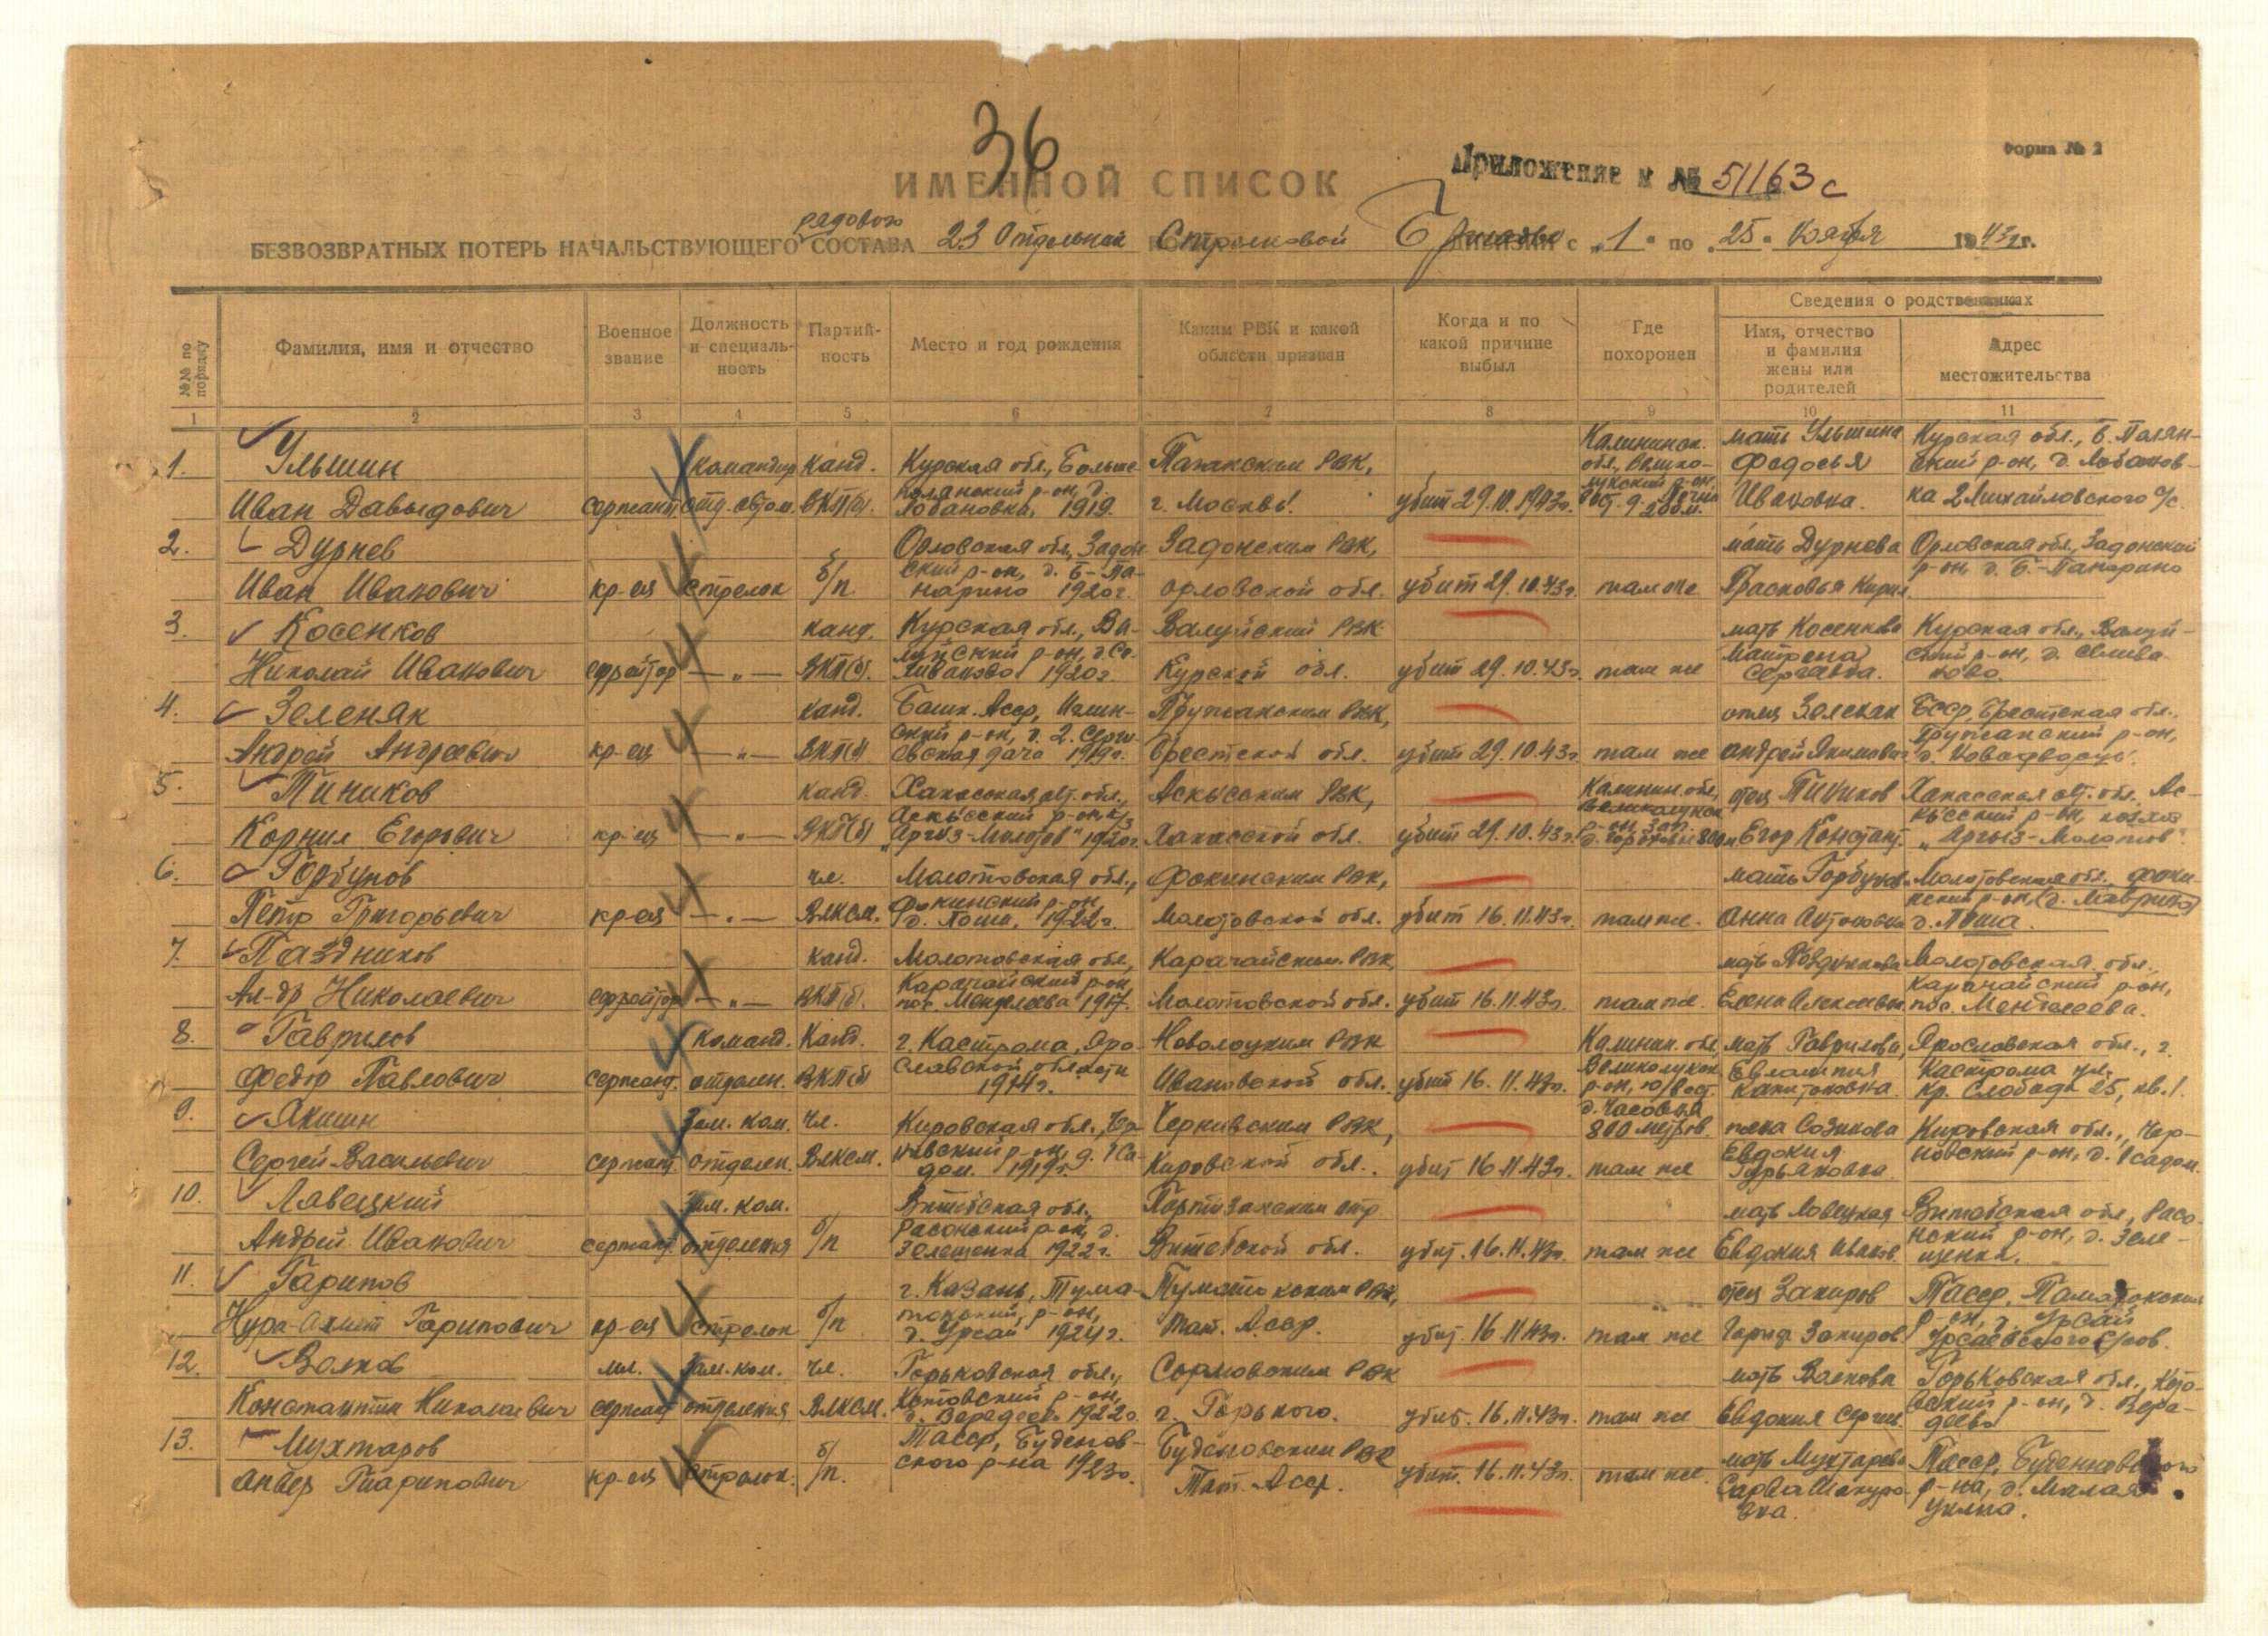 36
Форма № 2
ИМЕННОЙ СПИСОК
Приложение к № 51163с
рядового
БЕЗВОЗВРАТНЫХ ПОТЕРЬ НАЧАЛЬСТВУЮЩЕГО СОСТАВА 23 Отдельной Стрелковой Бригады с „1" по „25" Ноября 1943 г.
№№ по порядку
Фамилия, имя и отчество
Военное звание
Должность и специальность
Партийность
Место и год рождения
Каким РВК и какой области призван
Когда и по какой причине выбыл
Где похоронен
Сведения о родственниках
Имя, отчество и фамилия жены или родителей
Адрес местожительства
1 2 3 4 5 6 7 8 9 10 11
1. Ульшин командир канд. Курская обл., Больше Калининск. обл., Велико- мать Ульшина Курская обл., Б. Полян-
Иван Давыдович сержант отд. ВКП(б). полянский р-он, д. Лобановка, 1919. г. Москвы. убит 29.10.1943г. лукский р-он, Федосья Ивановна. ский р-он, д. Лобанов-ка 2 Михайловского с/с.
2. Дурнев б/ Орловская обл., Задон- Задонским РВК, мать Дурнева Орловская обл., Задонский
Иван Иванович кр-ец стрелок п. ский р-он, д. Б-Панарино 1920г. Орловской обл. убит 29.10.43г. там же Прасковья Кирил р-он, д. Б.-Панарино
3. Косенков канд. Курская обл., Ва- Валуйский РВК мать Косенкова Курская обл., Валуй-
Николай Иванович ефрейтор —„— ВКП(б). луйский р-он, д. Селиваново 1920г Курской обл. убит 29.10.43г. там же Матрена Сергеевна. ский р-он, д. Селиваново.
4. Зеленяк канд. Башк. Асср, Пружанским РВК, отец Зеленяк Бсср, Брестская обл.,
Андрей Андреевич кр-ец —„— ВКП(б) ский р-он, дача 1919г. Брестской обл. убит 29.10.43г. там же Андрей Якимович Пружанский р-он,
5. Тиников канд. Хакасская авт. обл., Аскысским РВК, Калинин. обл., отец Тиников Хакасская авт. обл. Ас-
Корнил Егорович кр-ец —„— ВКП(б) Аскысский р-он, к/з „Аргыз-Молотов" 1920г. Хакасской обл. убит 29.10.43г. Великолукск. р-он, зап. 800м Егор Констант. кысский р-он, колхоз „Аргыз-Молотов".
6. Горбунов чл. Молотовская обл., Фокинским РВК, мать Горбунов. Молотовская обл. Фоки-
Петр Григорьевич кр-ец —„— ВЛКСМ. Фокинский р-он, д. Поша, 1922г. Молотовской обл. убит 16.11.43г. там же. Анна Антоновна нский р-он, (д. Маврино) д. Поша.
7. Паздников канд. Молотовская обл., Карагайским РВК, мать Паздникова Молотовская обл.,
Ал-др Николаевич ефрейтор —„— ВКП(б). Карагайский р-он, пос. Менделеева 1917. Молотовской обл. убит 16.11.43г. там же. Елена Алексеевн. Карагайский р-он, пос. Менделеева.
8. Гаврилов Команд. Канд. г. Кастрома, Яро- РВК Калинин. обл, мать Гаврилова, Ярославская обл., г.
Федор Павлович сержант. отделен. ВКП(б) славской области 1914г. Ивановской обл. убит 16.11.43г. Великолукск. р-он, ю/вост. Евлампия Капитоновна. Кастрома ул. Кр. Слобода 25, кв. 1.
9. Якшин Зам. ком. чл. Кировская обл., Чер- Черновским РВК, д. Часовня 800 метров. жена Созинова Кировская обл., Чер-
Сергей Васильевич сержант. отделен. ВЛКСМ. новский р-он, 1919г. Кировской обл. убит 16.11.43г. там же Евдокия Гурьяновна. новский р-он, д.
10. Лавецкий Зам. ком. Витебская обл., Партизанским отр мать Ловецкая Витебская обл., Расо-
Андрей Иванович сержант. отделения б/п Расонский р-он, д. Зелещенка 1922г. Витебской обл. убит. 16.11.43г. там же Евдокия Иванов. нский р-он, д. Зелещенка.
11. Гарипов г. Казань, Тума- РВК, отец Закиров Тасср,
Нура-Ахмет Гарипович кр-ец стрелок б/п р-он, д. Урсай 1924г. Тат. Асср. убит. 16.11.43г. там же Гарид Закиров р-он, д. Урсай Урсаевского с/сов.
12. Волков мл. Зам. ком. чл. Горьковская обл., Сормовским РВК мать Волкова Горьковская обл.,
Константин Николаевич сержант отделения ВЛКСМ. р-он, 1922г. г. Горького. убит. 16.11.43г. там же Евдокия Сергеев. р-он, д.
13. Мухтаров б/ Тасср, Буденов- Буденовским РВК мать Мухтарова Тасср, Буденновского
Анвер Гарипович кр-ец стрелок. п. ского р-на 1923г. Тат. Асср. убит. 16.11.43г. там же. Сарва Шакуровна. р-на, д. Малая